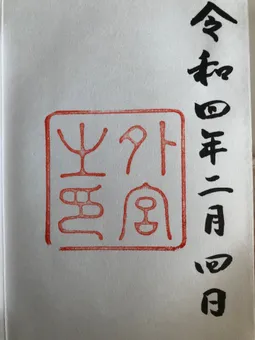 令和四年二月四日
外宮
之印